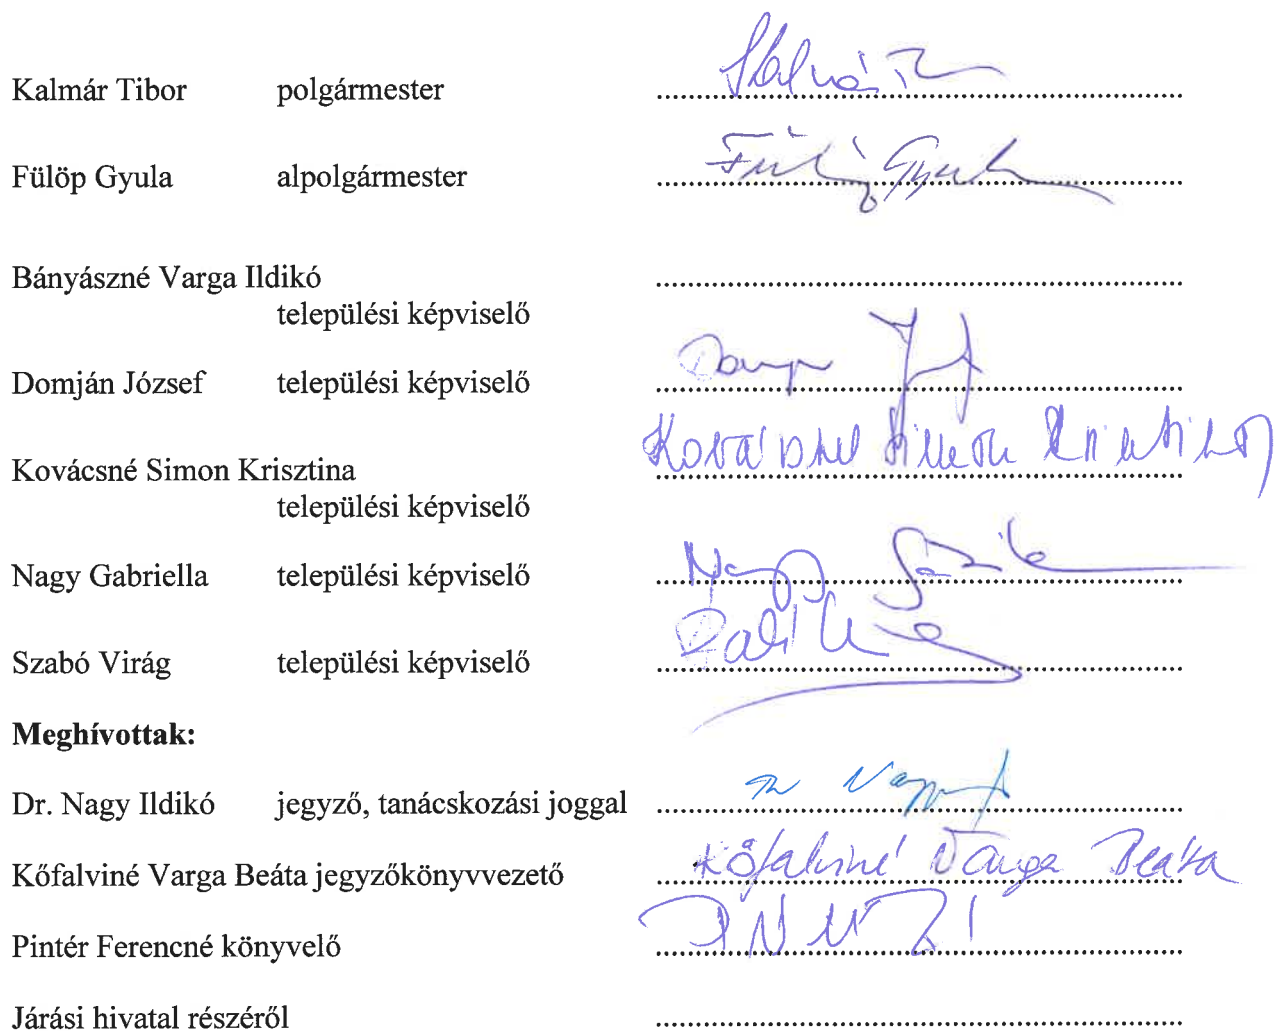 Kalmár Tibor polgármester ........................................
Fülöp Gyula alpolgármester Fülöp Gyula ........................................
Bányászné Varga Ildikó ........................................
települési képviselő
Domján József települési képviselő ........................................
Kovácsné Simon Krisztina Kovácsné Simon Krisztina ........................................
települési képviselő
Nagy Gabriella települési képviselő Nagy ........................................
Szabó Virág települési képviselő ........................................
Meghívottak:
Dr. Nagy Ildikó jegyző, tanácskozási joggal ........................................
Kőfalviné Varga Beáta jegyzőkönyvvezető Kőfalviné Varga Beáta ........................................
Pintér Ferencné könyvelő ........................................
Járási hivatal részéről ........................................